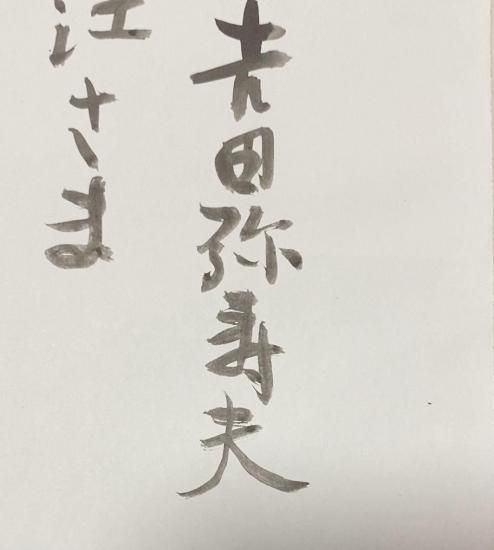 吉田弥寿夫
江さま